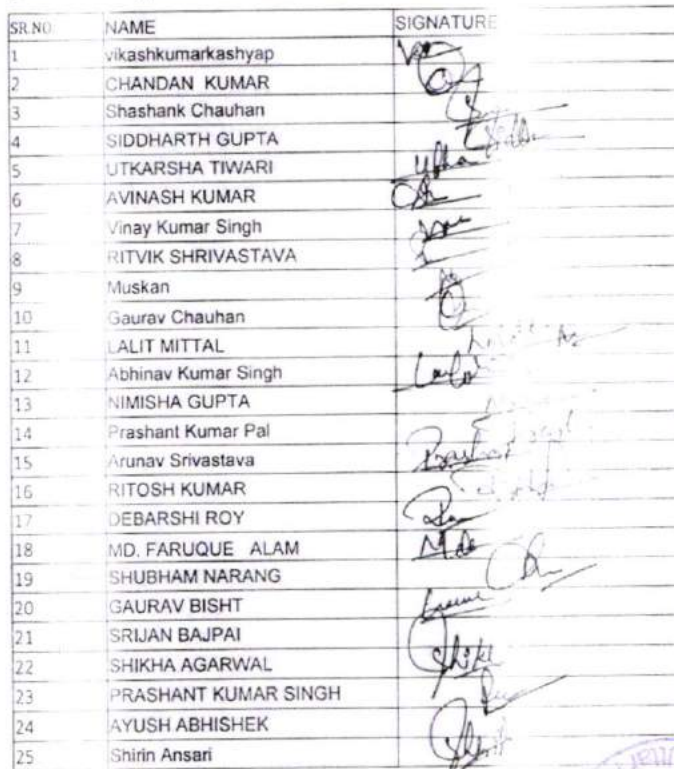 SR.NO. NAME SIGNATURE
1 vikashkumarkashyap
2 CHANDAN KUMAR
3 Shashank Chauhan
4 SIDDHARTH GUPTA
5 UTKARSHA TIWARI
6 AVINASH KUMAR
7 Vinay Kumar Singh
8 RITVIK SHRIVASTAVA
9 Muskan
10 Gaurav Chauhan
11 LALIT MITTAL
12 Abhinav Kumar Singh
13 NIMISHA GUPTA
14 Prashant Kumar Pal
15 Arunav Srivastava
16 RITOSH KUMAR
17 DEBARSHI ROY
18 MD. FARUQUE ALAM
19 SHUBHAM NARANG
20 GAURAV BISHT
21 SRIJAN BAJPAI
22 SHIKHA AGARWAL
23 PRASHANT KUMAR SINGH
24 AYUSH ABHISHEK
25 Shirin Ansari